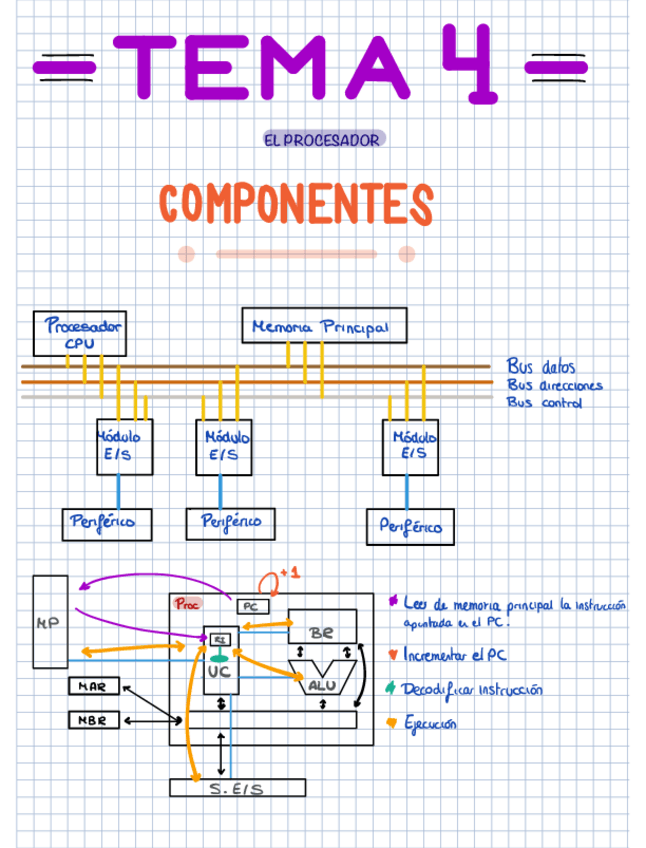 = TEMA 4 =
EL PROCESADOR
COMPONENTES
Procesador
CPU
Memoria Principal
Bus datos
Bus direcciones
Bus control
Módulo
E/S
Módulo
E/S
Módulo
E/S
Periférico
Periférico
Periférico
+1
MP
Proc
PC
RI
BR
UC
ALU
MAR
MBR
S.E/S
Leer de memoria principal la instrucción
apuntada en el PC.
Incrementar el PC
Decodificar instrucción
Ejecución